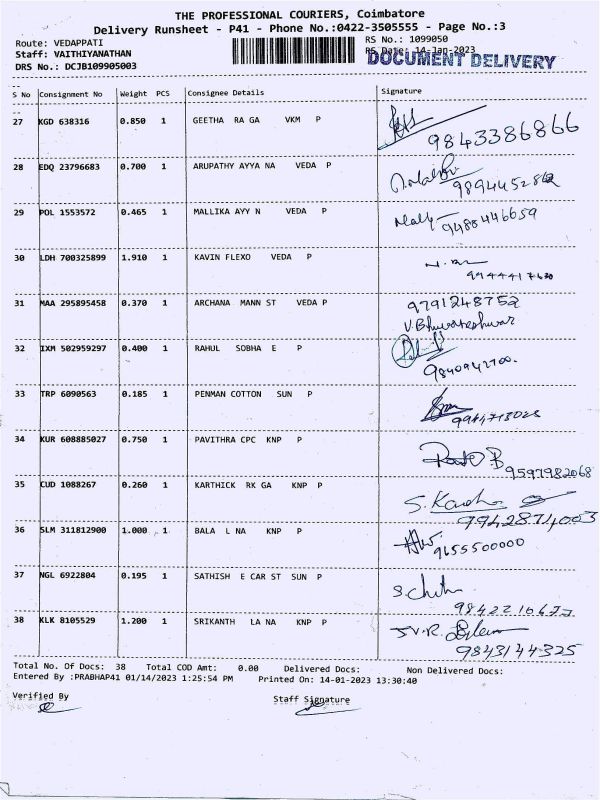 THE PROFESSIONAL COURIERS, Coimbatore
Delivery Runsheet - P41 - Phone No.:0422-3505555 - Page No.:3
Route: VEDAPPATI RS No.: 1099050
Staff: VAITHIYANATHAN RS Date: 14-Jan-2023
DOCUMENT DELIVERY
DRS No.: DCJB109905003
S No Consignment No Weight PCS Consignee Details Signature
27 KGD 638316 0.850 1 GEETHA RA GA VKM P
9843386866
28 EDQ 23796683 0.700 1 ARUPATHY AYYA NA VEDA P
9894452862
29 POL 1553572 0.465 1 MALLIKA AYY N VEDA P
9488446659
30 LDH 700325899 1.910 1 KAVIN FLEXO VEDA P
9944417630
31 MAA 295895458 0.370 1 ARCHANA MANN ST VEDA P
9791248752
V.Bhuvaneshwar
32 IXM 502959297 0.400 1 RAHUL SOBHA E P
9840942700.
33 TRP 6090563 0.185 1 PENMAN COTTON SUN P
34 KUR 608885027 0.750 1 PAVITHRA CPC KNP P
9597982068
35 CUD 1088267 0.260 1 KARTHICK RK GA KNP P
9942874003
36 SLM 311812900 1.000 1 BALA L NA KNP P
9655500000
37 NGL 6922804 0.195 1 SATHISH E CAR ST SUN P
38 KLK 8105529 1.200 1 SRIKANTH LA NA KNP P
9843144325
Total No. Of Docs: 38 Total COD Amt: 0.00 Delivered Docs: Non Delivered Docs:
Entered By :PRABHAP41 01/14/2023 1:25:54 PM Printed On: 14-01-2023 13:30:40
Verified By Staff Signature